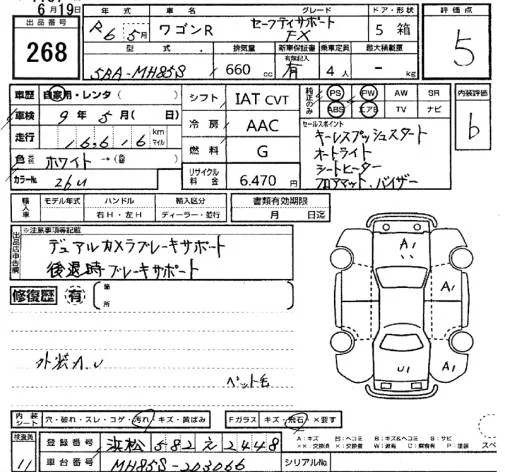 6月19日
年式 車名 グレード ドア・形状 評価点
出品番号 268
R6 5月 ワゴンR セーフティサポート FX 5 箱 5
型式 排気量 新車保証書 有無記入 乗車定員 最大積載量
5BA-MH85S 660 cc 有 4人 - kg
車歴 自家用・レンタ( )
車検 9年5月( 日)
走行 16,616 km マイル
色 ホワイト →( )
カラーNo. 26U
シフト IAT CVT
冷房 AAC
燃料 G
リサイクル料金 6,470円
純正のみ PS PW AW SR
ABS エアB TV ナビ
内装評価 b
セールスポイント
キーレスプッシュスタート
オートライト
シートヒーター
フロアマット、バイザー
輸入車 モデル年式 ハンドル 輸入区分 書類有効期限
年 右H・左H ディーラー・並行 月 日迄
出品店申告欄 ※注意事項等記載
デュアルカメラブレーキサポート
後退時ブレーキサポート
修復歴 有 箇所
A1
A1
A1
U1
外装A.U
ペット毛
内装シート 穴・破れ・スレ・コゲ・汚れ・キズ・黄ばみ Fガラス キズ・飛石・×要す
検査員 11
登録番号 浜松 582 え 2448
A:キズ U:ヘコミ B:キズ&ヘコミ S:サビ
車台番号 MH85S-203066 シリアルNo.